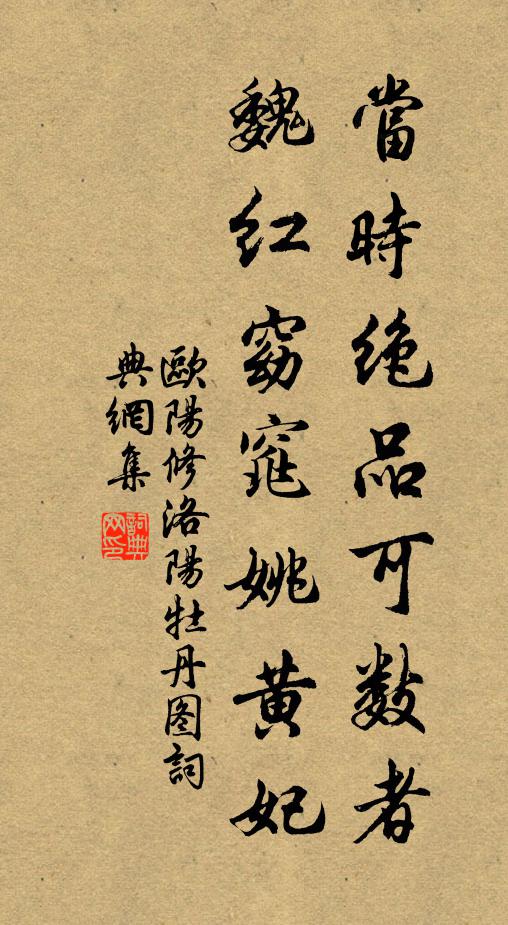 當時絶品可數者
魏红窈窕姚黄妃
歐陽修洛陽牡丹图詞
典網集
詞典
网印